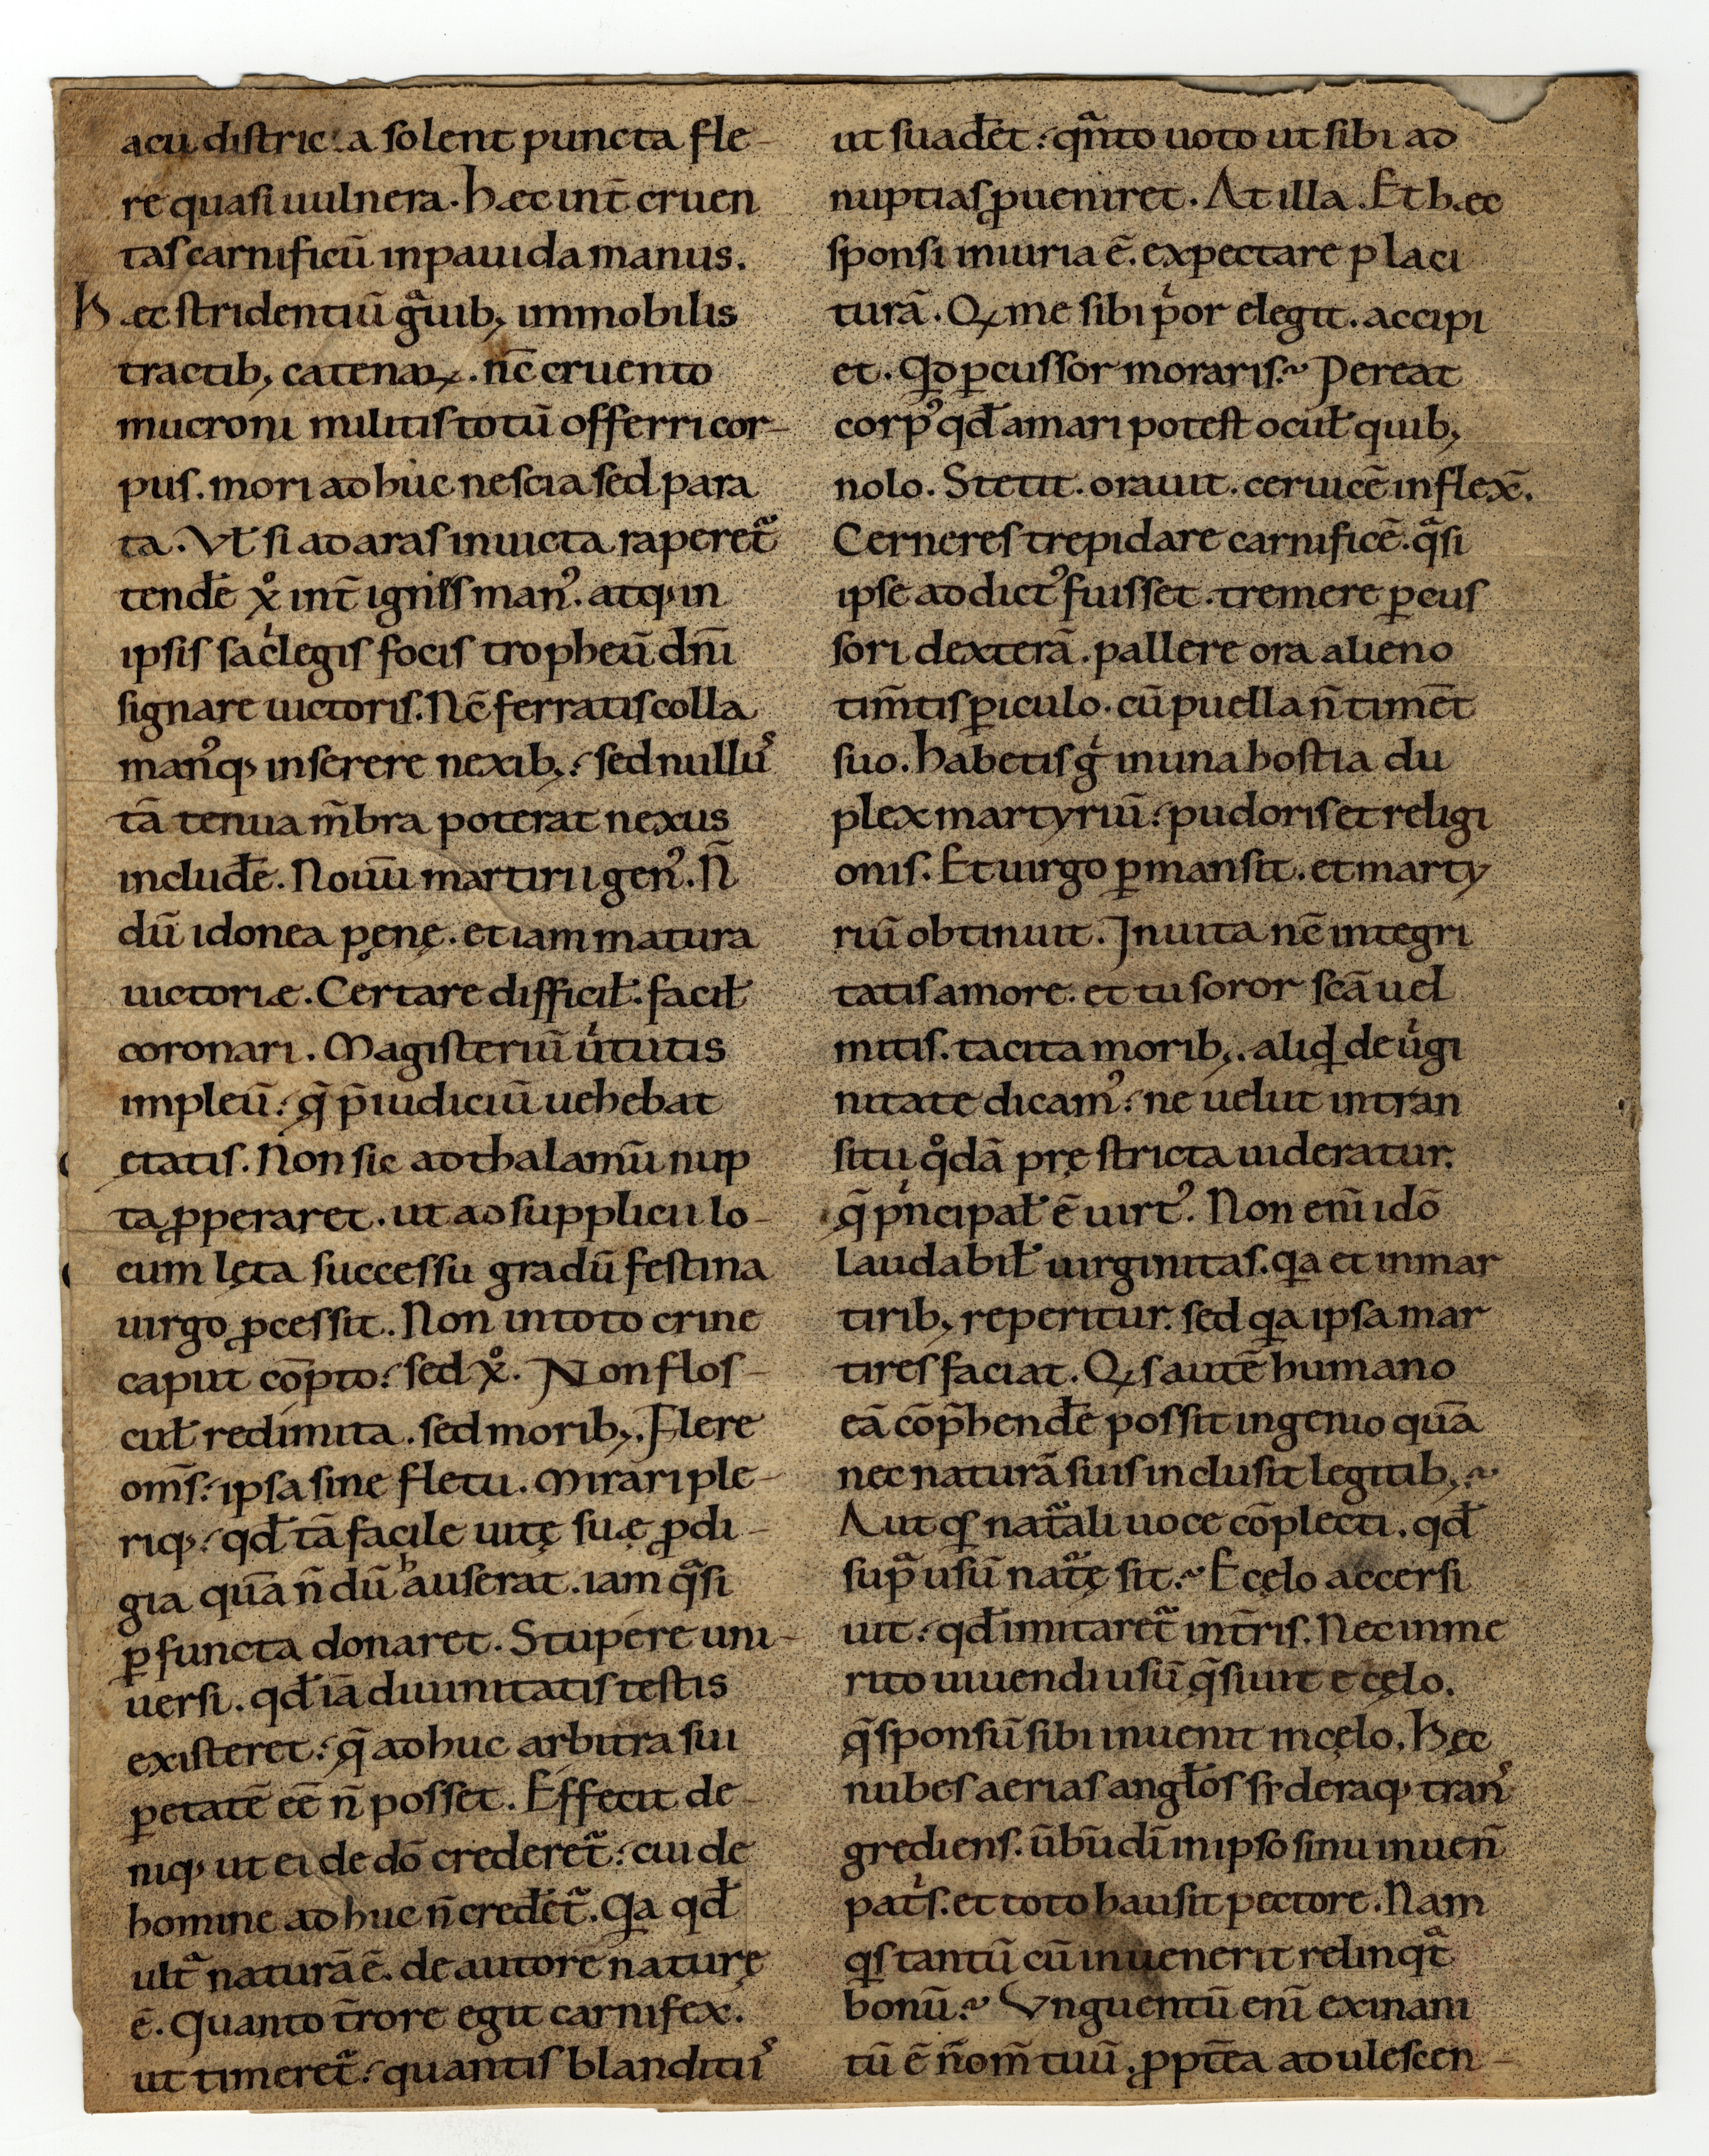 acu distric a solent puncta fle-
re quasi uulnera. hæc int̄ cruen
tas carnificū inpauida manus.
Hæc stridentiū gͣuib; immobilis
tractib; catenaꝝ. nc̄ cruento
mucroni militis totū offerri cor-
pus. mori adhuc nescia sed para
ta. Vł si ad aras inuicta raperet᷑
tendē xͦ int̄ ignis manꝰ. atq; in
ipsis sacͥlegis focis tropheū dn̄i
signare uictoris. Nc̄ ferratis colla
manꝰq; inserere nexib;. sed nullꝰ
tā tenuia m̄bra poterat nexus
includē. Nouū martirii genꝰ. N̄
dū idonea pęnę. et iam matura
uictoriæ. Certare difficił. facił
coronari. Magisteriū uͥtutis
impleū. q̄ p̄iudiciū uehebat
ętatis. Non sic ad thalamū nup
ta ꝓperaret. ut ad supplicii lo-
cum lęta successu gradū festina
uirgo ꝓcessit. Non intoto crine
caput cōpto. sed xͦ. Non flos-
cuł redimita. sed morib;. Flere
om̄s. ipsa sine fletu. Mirari ple-
riq;. qd̄ tā facile uitę suæ ꝓdi-
gia quā n̄ dū hauserat. iam qͣsi
ꝑfuncta donaret. Stupere uni-
uersi. qd̄ iā diuinitatis testis
existeret. q̄ adhuc arbitra sui
ꝑ etatē eē n̄ posset. Effecit de-
niq; ut ei de dō crederet᷑. cui de
homine adhuc n̄ credēt᷑. Qa qd̄
ultͣ naturā ē. de autore naturę
ē. Quanto t̄rore egit carnifex.
ut timeret᷑. quantis blanditiꝰ
ut suadēt. qͣnto uoto ut sibi ad
nuptias ꝑueniret. At illa. Et hæc
sponsi iniuria ē. expectare placi
turā. Qꝫ me sibi pͥor elegit. accipi
et. Qd ꝑcussor moraris? Pereat
corpꝰ qd̄ amari potest ocuł quib;
nolo. Stetit. orauit. ceruicē inflex̄.
Cerneres trepidare carnificē. qͣsi
ipse addictꝰ fuisset. tremere ꝑcus
sori dexterā. pallere ora alieno
tim̄tis ꝑiculo. cū puella n̄ timēt
suo. habetis gͥ in una hostia du
plex martyriū. pudoris et religi
onis. Et uirgo ꝑmansit. et marty
riū obtinuit. Inuita nc̄ integri
tatis amore. et tu soror scā uel
mitis. tacita morib;. aliqd de uͥgi
nitate dicamꝰ. ne uelut intran
situ qͦdā pręstricta uideratur.
q̄ pͥncipał ē uirtꝰ. Non eni̅ idō
laudabił uirginitas. qa et in mar
tirib; reperitur. sed qa ipsa mar
tires faciat. Qꝫs autē humano
eā cōp̄hendē possit ingenio quā
nec naturā suis inclusit legitib;?
Aut qs natͣali uoce cōplecti. qd̄
supͣ usū natͣę sit? E cęlo accersi
uit. qd̄ imitaret᷑ int̄ris. Nec inme
rito uiuendi usū q̄siuit e cęlo.
q̄ sponsū sibi inuenit in cęlo. Hęc
nubes aerias angłos sideraq; tranꝰ
grediens. ūbū dī in ipso sinu inuen̄
patͥs. et toto hausit pectore. Nam
qs tantū cū inuenerit relinqͣt
bonū? Vnguentū eni̅ exinani
tū ē n̄om̄ tuū. ꝓpt̄ea adulescen-